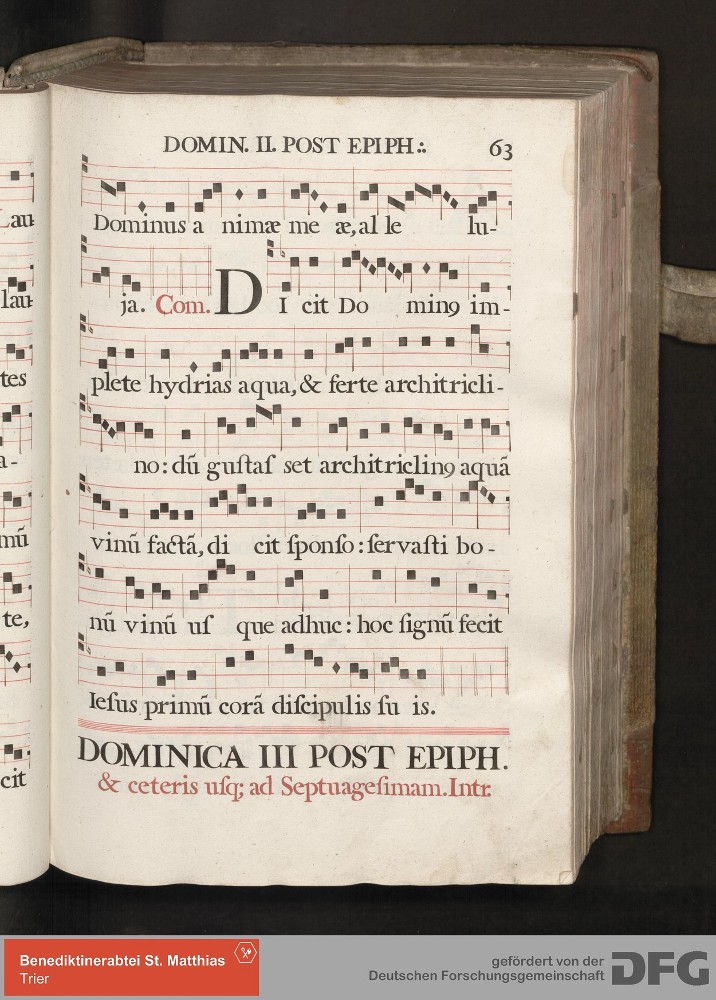 Lau
lau-
tes
a-
mũ
te,
cit
DOMIN. II. POST EPIPH.: 63
Dominus a nimæ me æ, al le lu-
ja. Com. DIcit Do minꝰ im-
plete hydrias aqua, & ferte architricli-
no: dũ guſtaſ set architriclinꝰ aquã
vinũ factã, di cit ſponſo: ſervaſti bo-
nũ vinũ uſ que adhuc: hoc ſignũ fecit
Ieſus primũ corã diſcipulis ſu is.
DOMINICA III POST EPIPH.
& ceteris uſq; ad Septuageſimam. Intr.
Benediktinerabtei St. Matthias
Trier
gefördert von der
Deutschen Forschungsgemeinschaft DFG